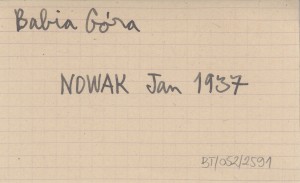 Babia Góra
NOWAK Jan 1937
BT/052/2591